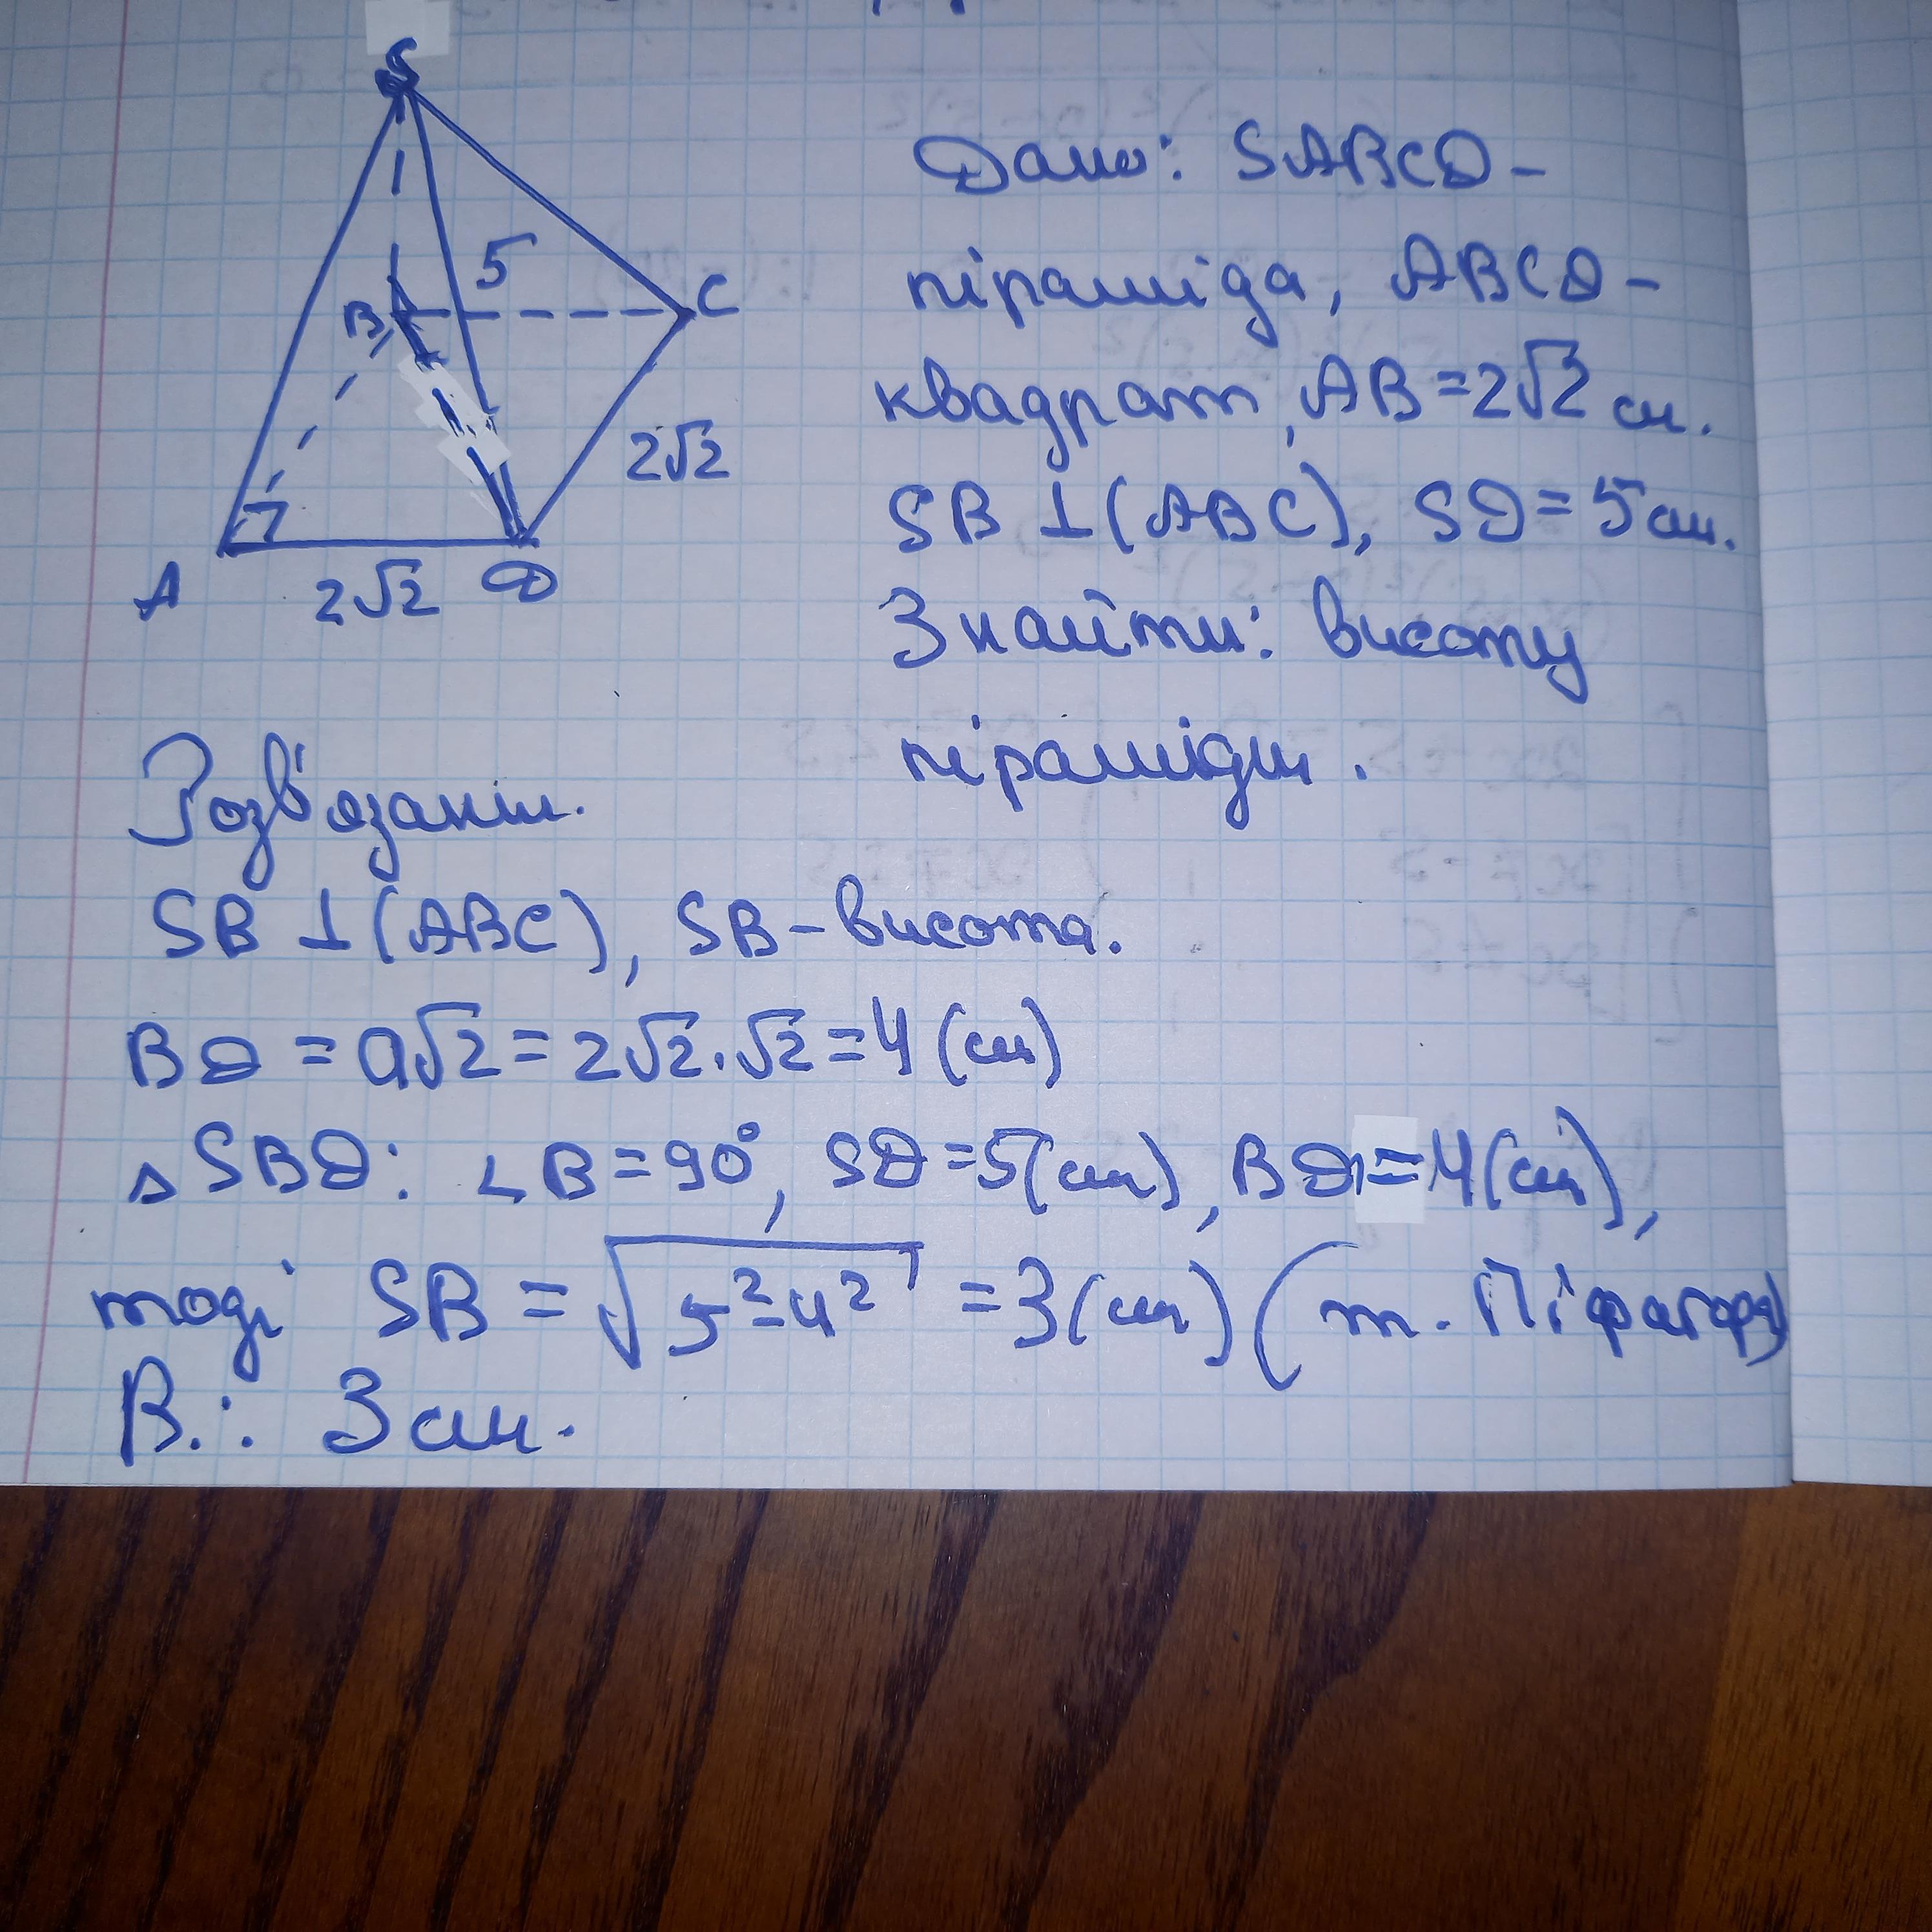 S
5
B
C
2√2
A
2√2
D
Дано: SABCD –
піраміда, ABCD –
квадрат, AB = 2√2 см.
SB ⊥ (ABC), SD = 5 см.
Знайти: висоту
піраміди.
Розв'язання.
SB ⊥ (ABC), SB – висота.
BD = a√2 = 2√2 · √2 = 4 (см)
△ SBD: ∠B = 90°, SD = 5 (см), BD = 4 (см),
тоді SB = √5² - 4² = 3 (см) (т. Піфагора)
В.: 3 см.